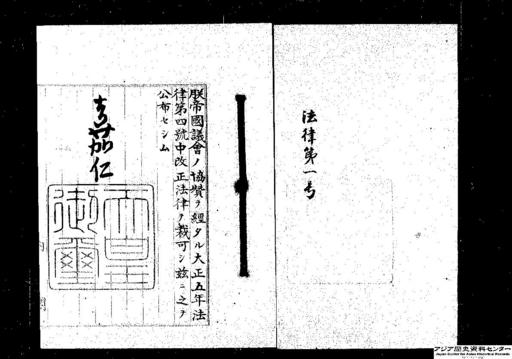 法律第一号
朕帝國議會ノ協賛ヲ經タル大正五年法
律第四號中改正法律ヲ裁可シ茲ニ之ヲ
公布セシム
嘉仁
天皇
御璽
アジア歴史資料センター
Japan Center for Asian Historical Records